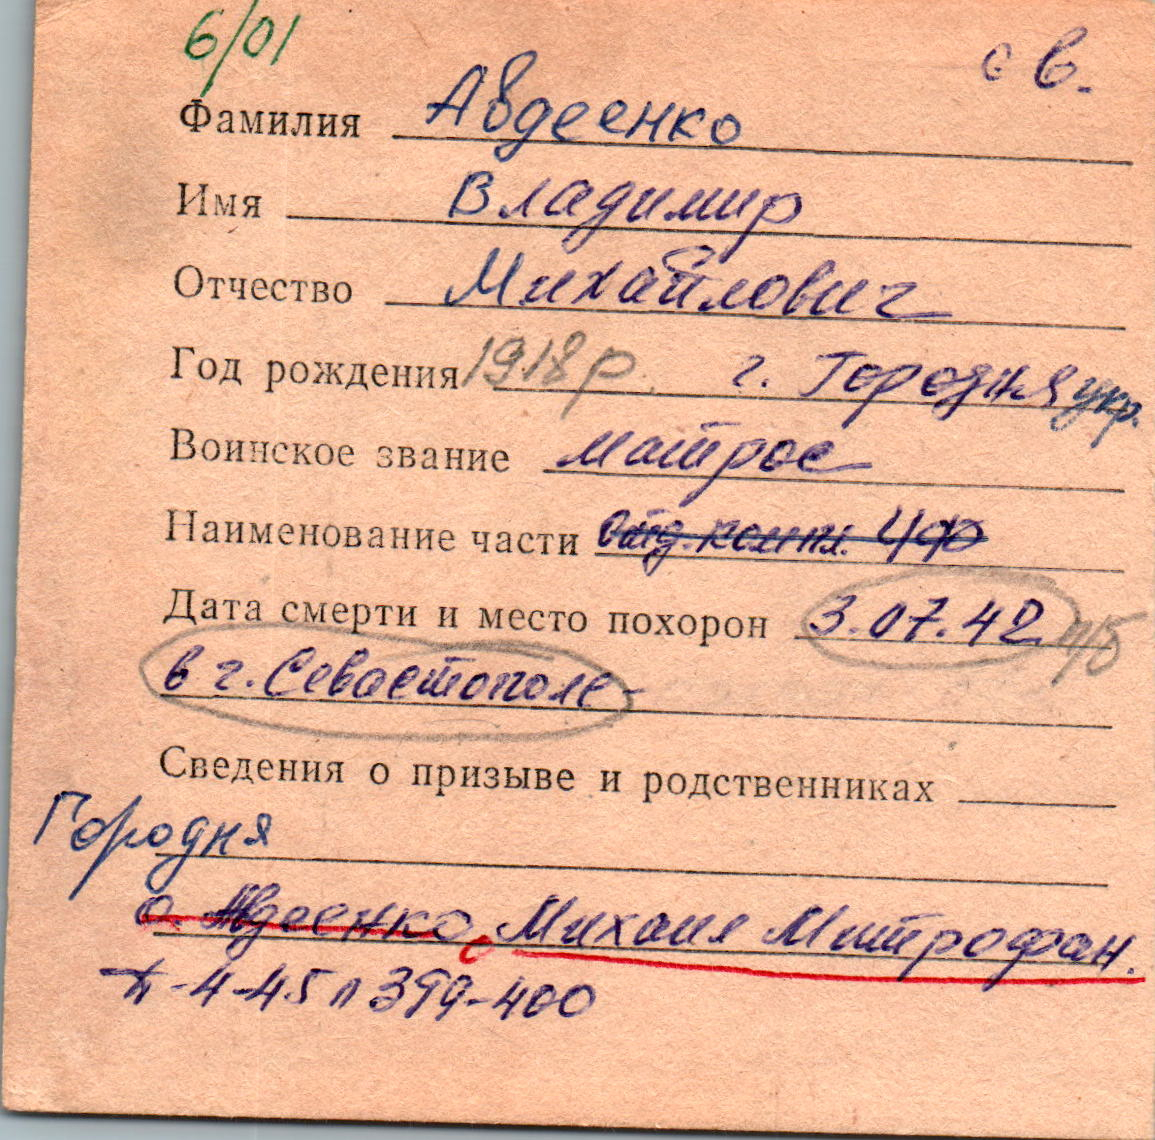 6/01
с в.
Фамилия Авдеенко
Имя Владимир
Отчество Михайлович
Год рождения 1918 р. г. Городня укр.
Воинское звание матрос
Наименование части Отд. компл. ЧФ
Дата смерти и место похорон 3.07.42 п/б
в г. Севастополе-
Сведения о призыве и родственниках
Городня
о. Авдеенко, Михаил Митрофан.
-4-45 л 399-400